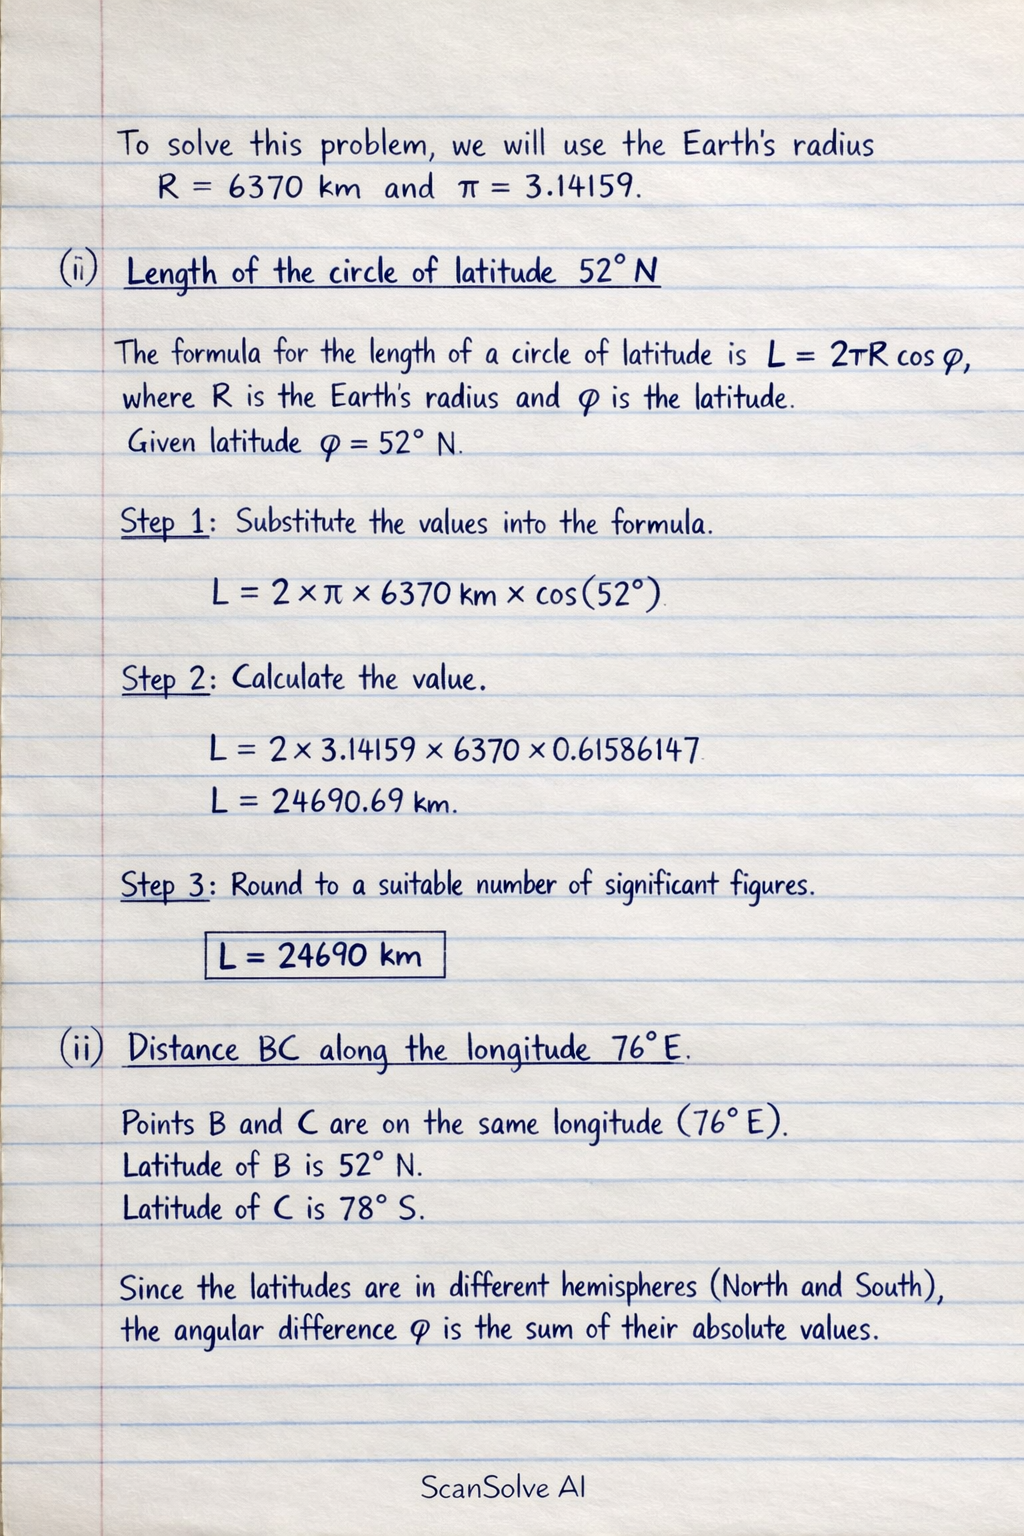 To solve this problem, we will use the Earth's radius
R = 6370 km and π = 3.14159.
(ii) Length of the circle of latitude 52° N
The formula for the length of a circle of latitude is L = 2πR cos φ,
where R is the Earth's radius and φ is the latitude.
Given latitude φ = 52° N.
Step 1: Substitute the values into the formula.
L = 2 × π × 6370 km × cos(52°).
Step 2: Calculate the value.
L = 2 × 3.14159 × 6370 × 0.61586147
L = 24690.69 km.
Step 3: Round to a suitable number of significant figures.
L = 24690 km
(ii) Distance BC along the longitude 76° E.
Points B and C are on the same longitude (76° E).
Latitude of B is 52° N.
Latitude of C is 78° S.
Since the latitudes are in different hemispheres (North and South),
the angular difference φ is the sum of their absolute values.
ScanSolve AI